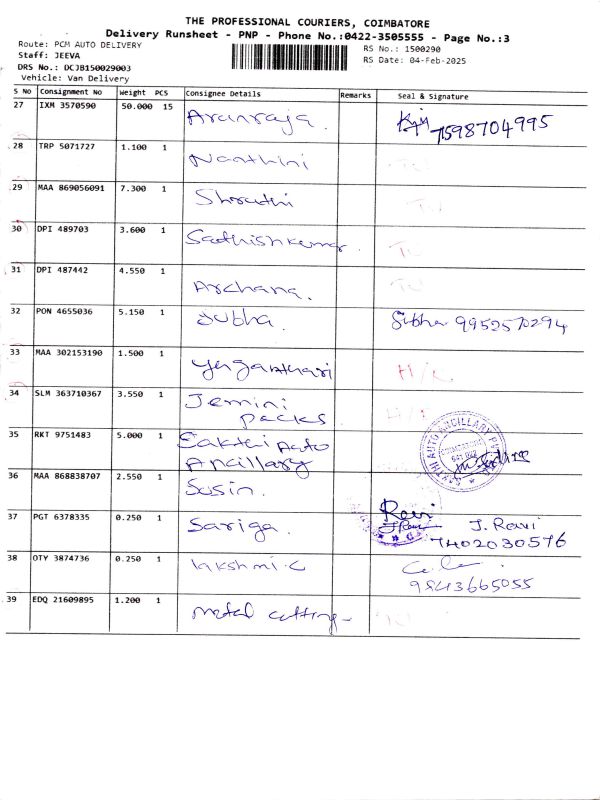 THE PROFESSIONAL COURIERS, COIMBATORE
Delivery Runsheet - PNP - Phone No.:0422-3505555 - Page No.:3
Route: PCM AUTO DELIVERY
RS No.: 1500290
Staff: JEEVA
RS Date: 04-Feb-2025
DRS No.: DCJB150029003
Vehicle: Van Delivery
S No Consignment No Weight PCS Consignee Details Remarks Seal & Signature
27 IXM 3570590 50.000 15 Aranraja.
7598704995
28 TRP 5071727 1.100 1 Nanthini
29 MAA 869056091 7.300 1 Shruthi
30 DPI 489703 3.600 1 Sathishkumar.
31 DPI 487442 4.550 1 Archana.
32 PON 4655036 5.150 1 Subha. Subha 9952570294
33 MAA 302153190 1.500 1 Yuganthari H/L
34 SLM 363710367 3.550 1 Jemini
Packs
35 RKT 9751483 5.000 1 Sakthi Auto
Ancillary
SAKTHI AUTO ANCILLARY
36 MAA 868838707 2.550 1 Susin.
37 PGT 6378335 0.250 1 Sariga. Ravi J. Ravi
7402030576
38 OTY 3874736 0.250 1 lakshmi.c
9843665055
39 EDQ 21609895 1.200 1 metal cutting